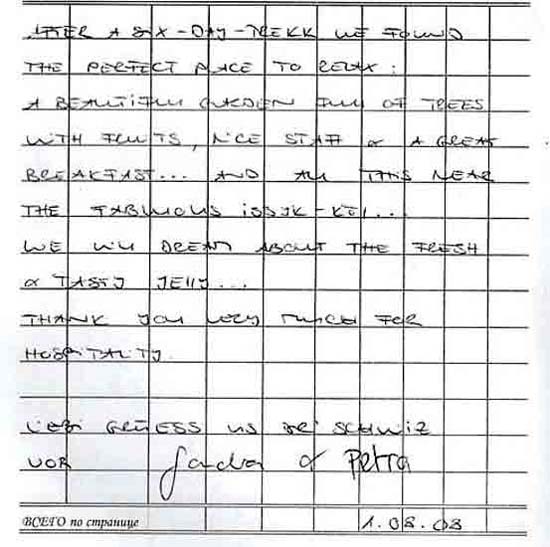 AFTER A SIX-DAY-TREKK WE FOUND
THE PERFECT PLACE TO RELAX:
A BEAUTIFUL GARDEN FULL OF TREES
WITH FRUITS, NICE STAFF & A GREAT
BREAKFAST... AND ALL THIS NEAR
THE FABULOUS ISSYK-KUL...
WE WILL DREAM ABOUT THE FRESH
& TASTY JELLY...
THANK YOU VERY MUCH FOR
HOSPITALITY.
LIEBI GRÜESS US DR SCHWIZ
VOR & PETRA
ВСЕГО по странице 1.08.08